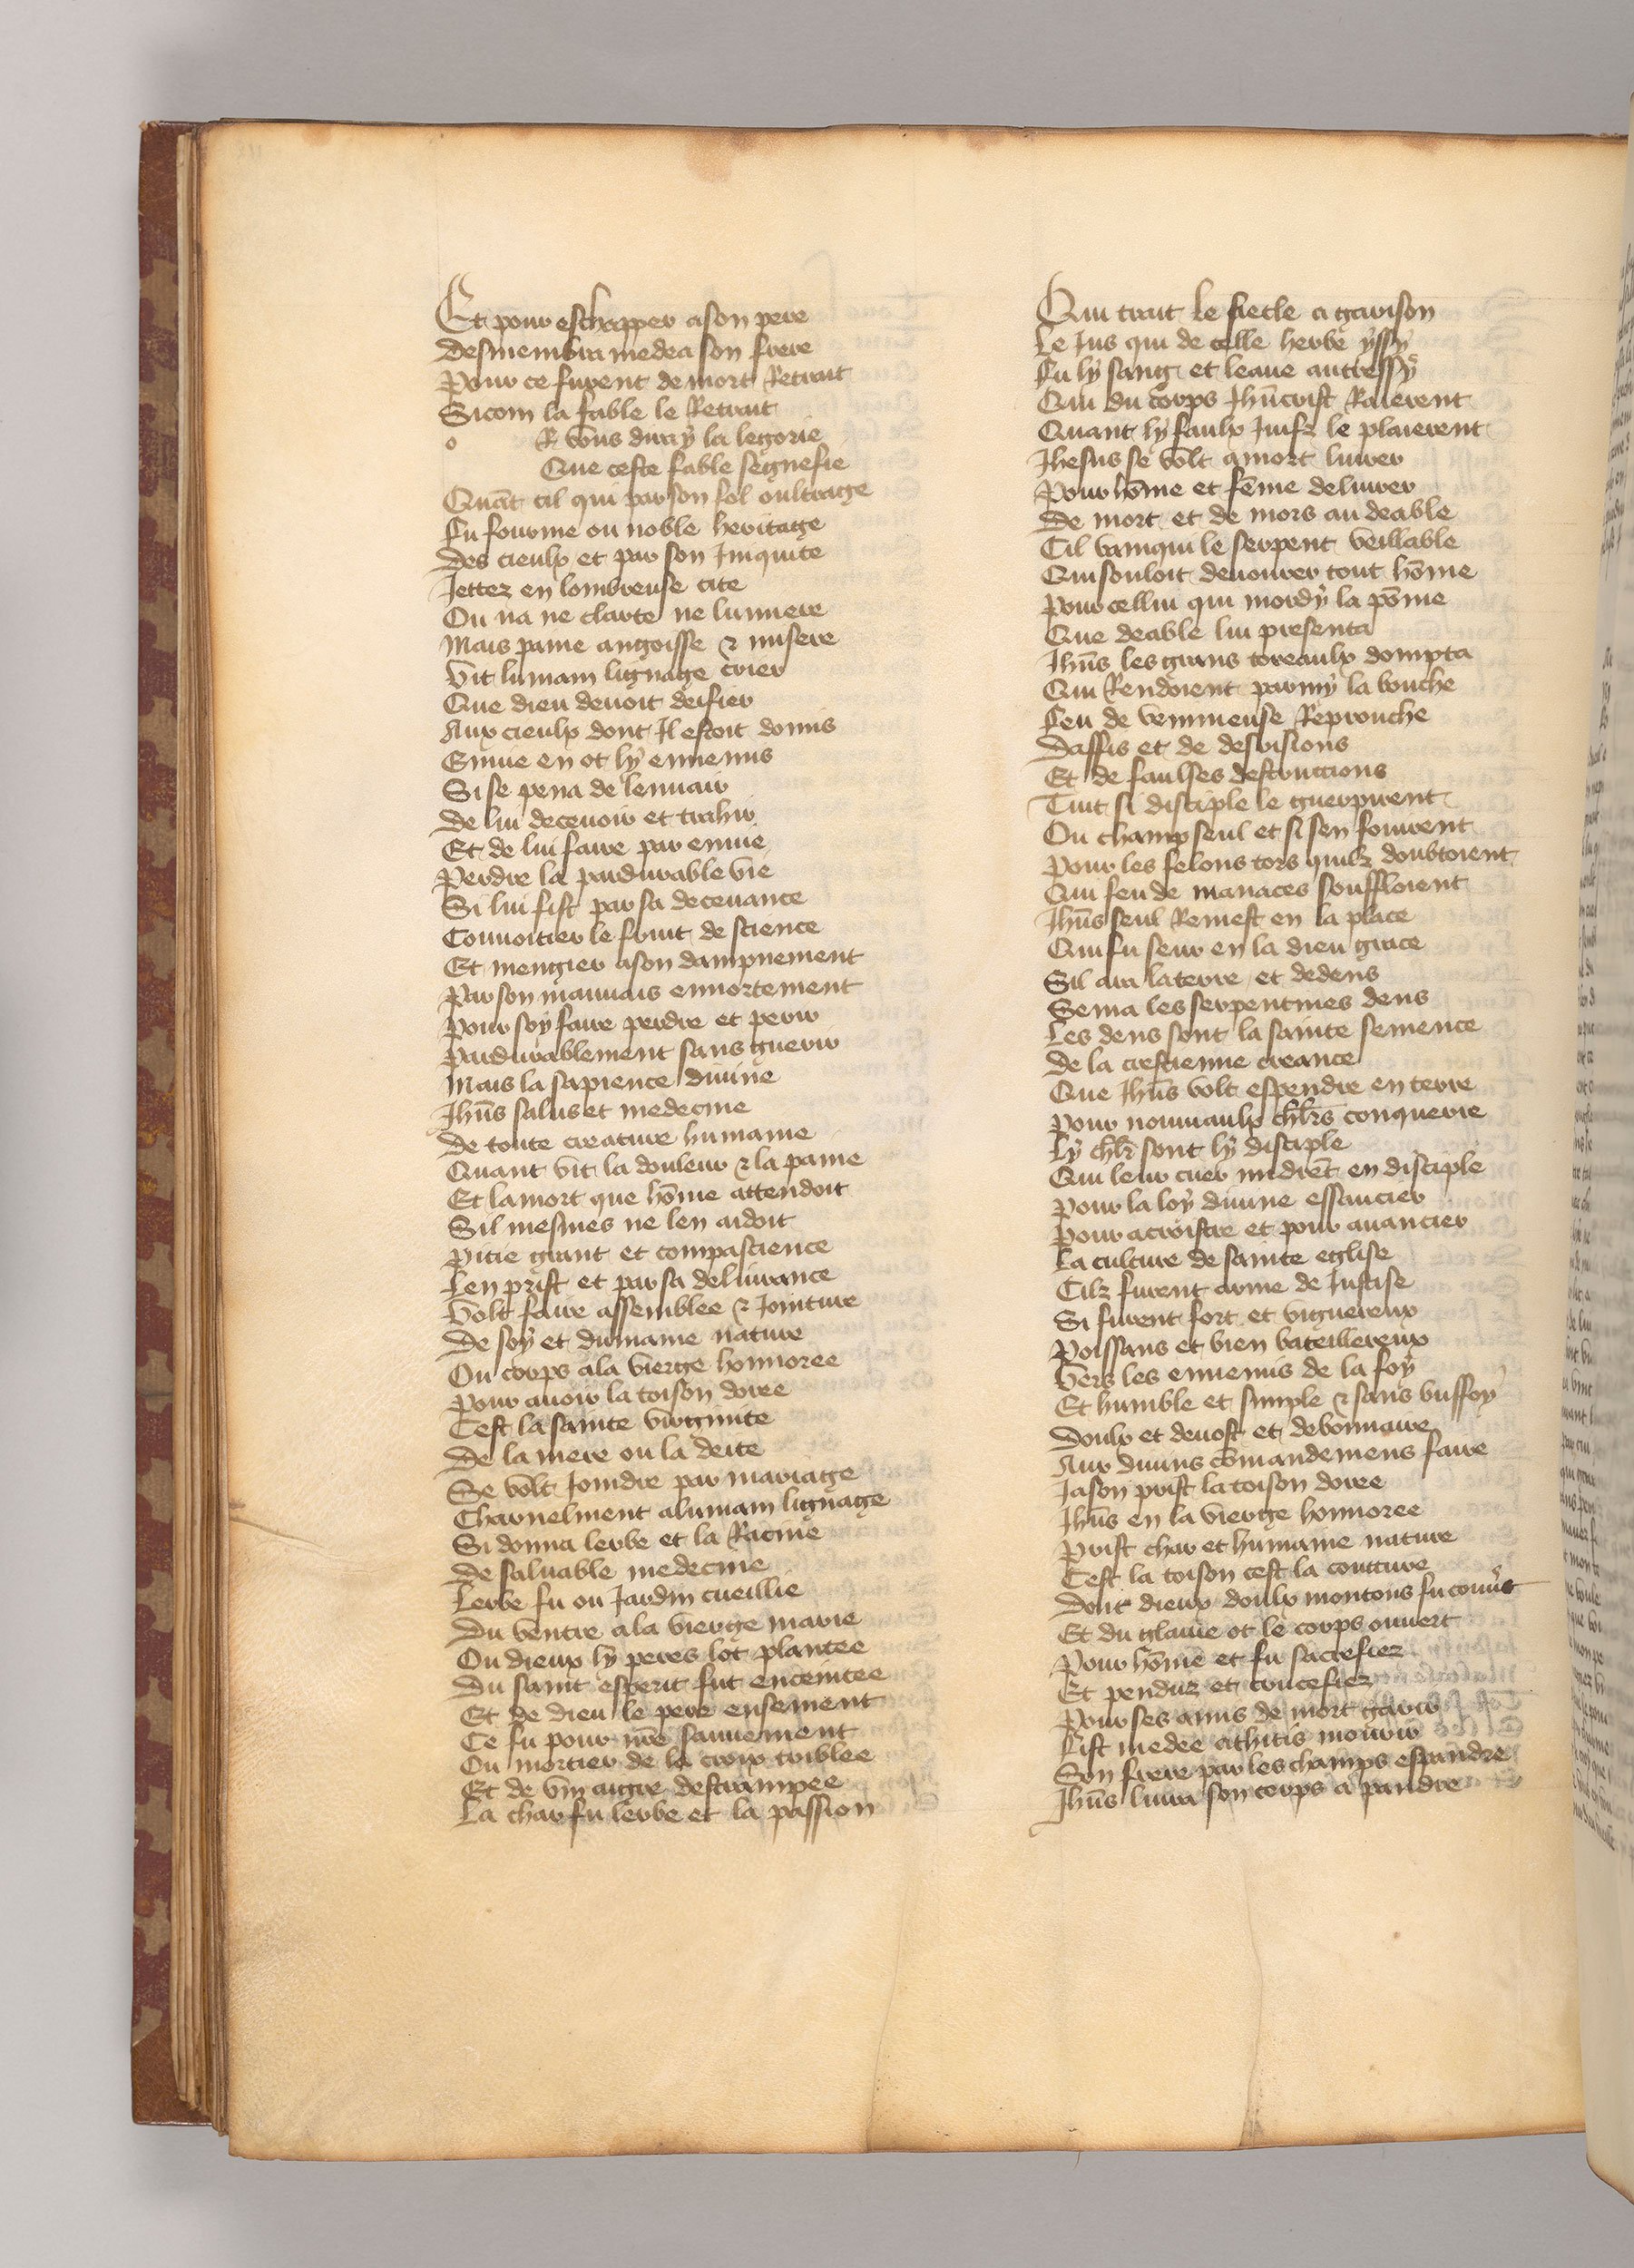 Et pour eschapper a son pere
Desmembra medea son frere
Pour ce furent de mort Retrait
Sicom la fable le Retrait
o R vous diray la legorie
Que ceste fable segnefie
Quāt cil qui par son fol oultrage
Fu fourme ou noble heritage
Des cieulx et par son Iniquite
Jettez en lombreuse cite
Ou na ne clarte ne lumiere
Mais paine angoisse & misere
Vit lumain lignage crier
Que dieu devoit deifier
Aux cieulx dont Il estoit domis
Envie en ot ly ennemis
Si se pena de lenvair
De lui decevoir et trahir
Et de lui faire par envie
Perdre la pardurable vie
Si lui fist par sa decevance
Convoitier le fruit de science
Et mengier a son dampnement
Par son mauvais ennortement
Pour soy faire perdre et perir
Pardurablement sans guerir
Mais la sapience divine
Jhūs salus et medecine
De toute creature humaine
Quant vit la douleur & la paine
Et la mort que hōme attendoit
Sil mesmes ne len aidoit
Pitie grant et compascience
Len prist et par sa delivrance
Volt faire assemblee & Jointure
De soy et dumaine nature
Ou corps a la vierge honnoree
Pour avoir la toison doree
Cest la sainte virginite
De la mere ou la deite
Se volt Joindre par mariage
Charnelment a lumain lignage
Si donna lerbe et la Racine
De saluable medecine
Lerbe fu ou Jardin cueillie
Du ventre a la vierge marie
Ou dieux ly peres lot plantee
Du saint esperit fut enceintee
Et de dieu le pere ensement
Ce fu pour nr̄e sauvement
Ou mortier de la croix triblee
Et de vin aigre destrampee
La char fu lerbe et la passion
Qui trait le siecle a garison
Le Jus qui de celle herbe yssy
Fu ly sang et leaue autressy
Qui du corps Jhūcrist Raierent
Quant ly faulx Juifz le plaierent
Jhesus se volt a mort livrer
Pour hōme et fēme delivrer
De mort et de mors au deable
Cil vainqui le serpent veillable
Qui souloit devourer tout hōme
Pour cellui qui mordy la pōme
Que deable lui presenta
Jhūs les grans toreaulx dompta
Qui Rendoient parmy la bouche
Feu de venimeuse Reprouche
Daffis et de desvisions
Et de faulses destruccions
Tuit si disciple le guerpirent
Ou champ seul et si sen fouirent
Pour les felons tors quilz doubtoient
Qui feu de manaces souffloient
Jhūs seul Remest en la place
Qui fu seur en la dieu grace
Sil ara la terre et dedens
Sema les serpentines dens
Les dens sont la sainte semence
De la crestienne creance
Que Jhūs volt espendre en terre
Pour nouviaulx chl̄rs conquerre
Ly chl̄r sont ly disciple
Qui leur cuer midrēt en disciple
Pour la loy divine essaucier
Pour acroistre et pour avancier
La culture de sainte eglise
Cilz furent arme de Justise
Si furent fort et viguereux
Poissans et bien bateillereux
Vers les ennemis de la foy
Et humble et simple & sans buffoy
Doulx et devost et debonnaire
Aux divins cōmandemens faire
Jason prist la toison doree
Jhūs en la vierge honnoree
Prist char et humaine nature
Cest la toison cest la couture
Dont dieux doulx moutons fu couv̄t
Et du glaive ot le corps ouvert
Pour hōme et fu sacrefiez
Et penduz et crucefiez
Pour ses amis de mort garir
Fist medee a thitis mourir
Son frere par les champs espandre
Jhūs livra son corps a pandre